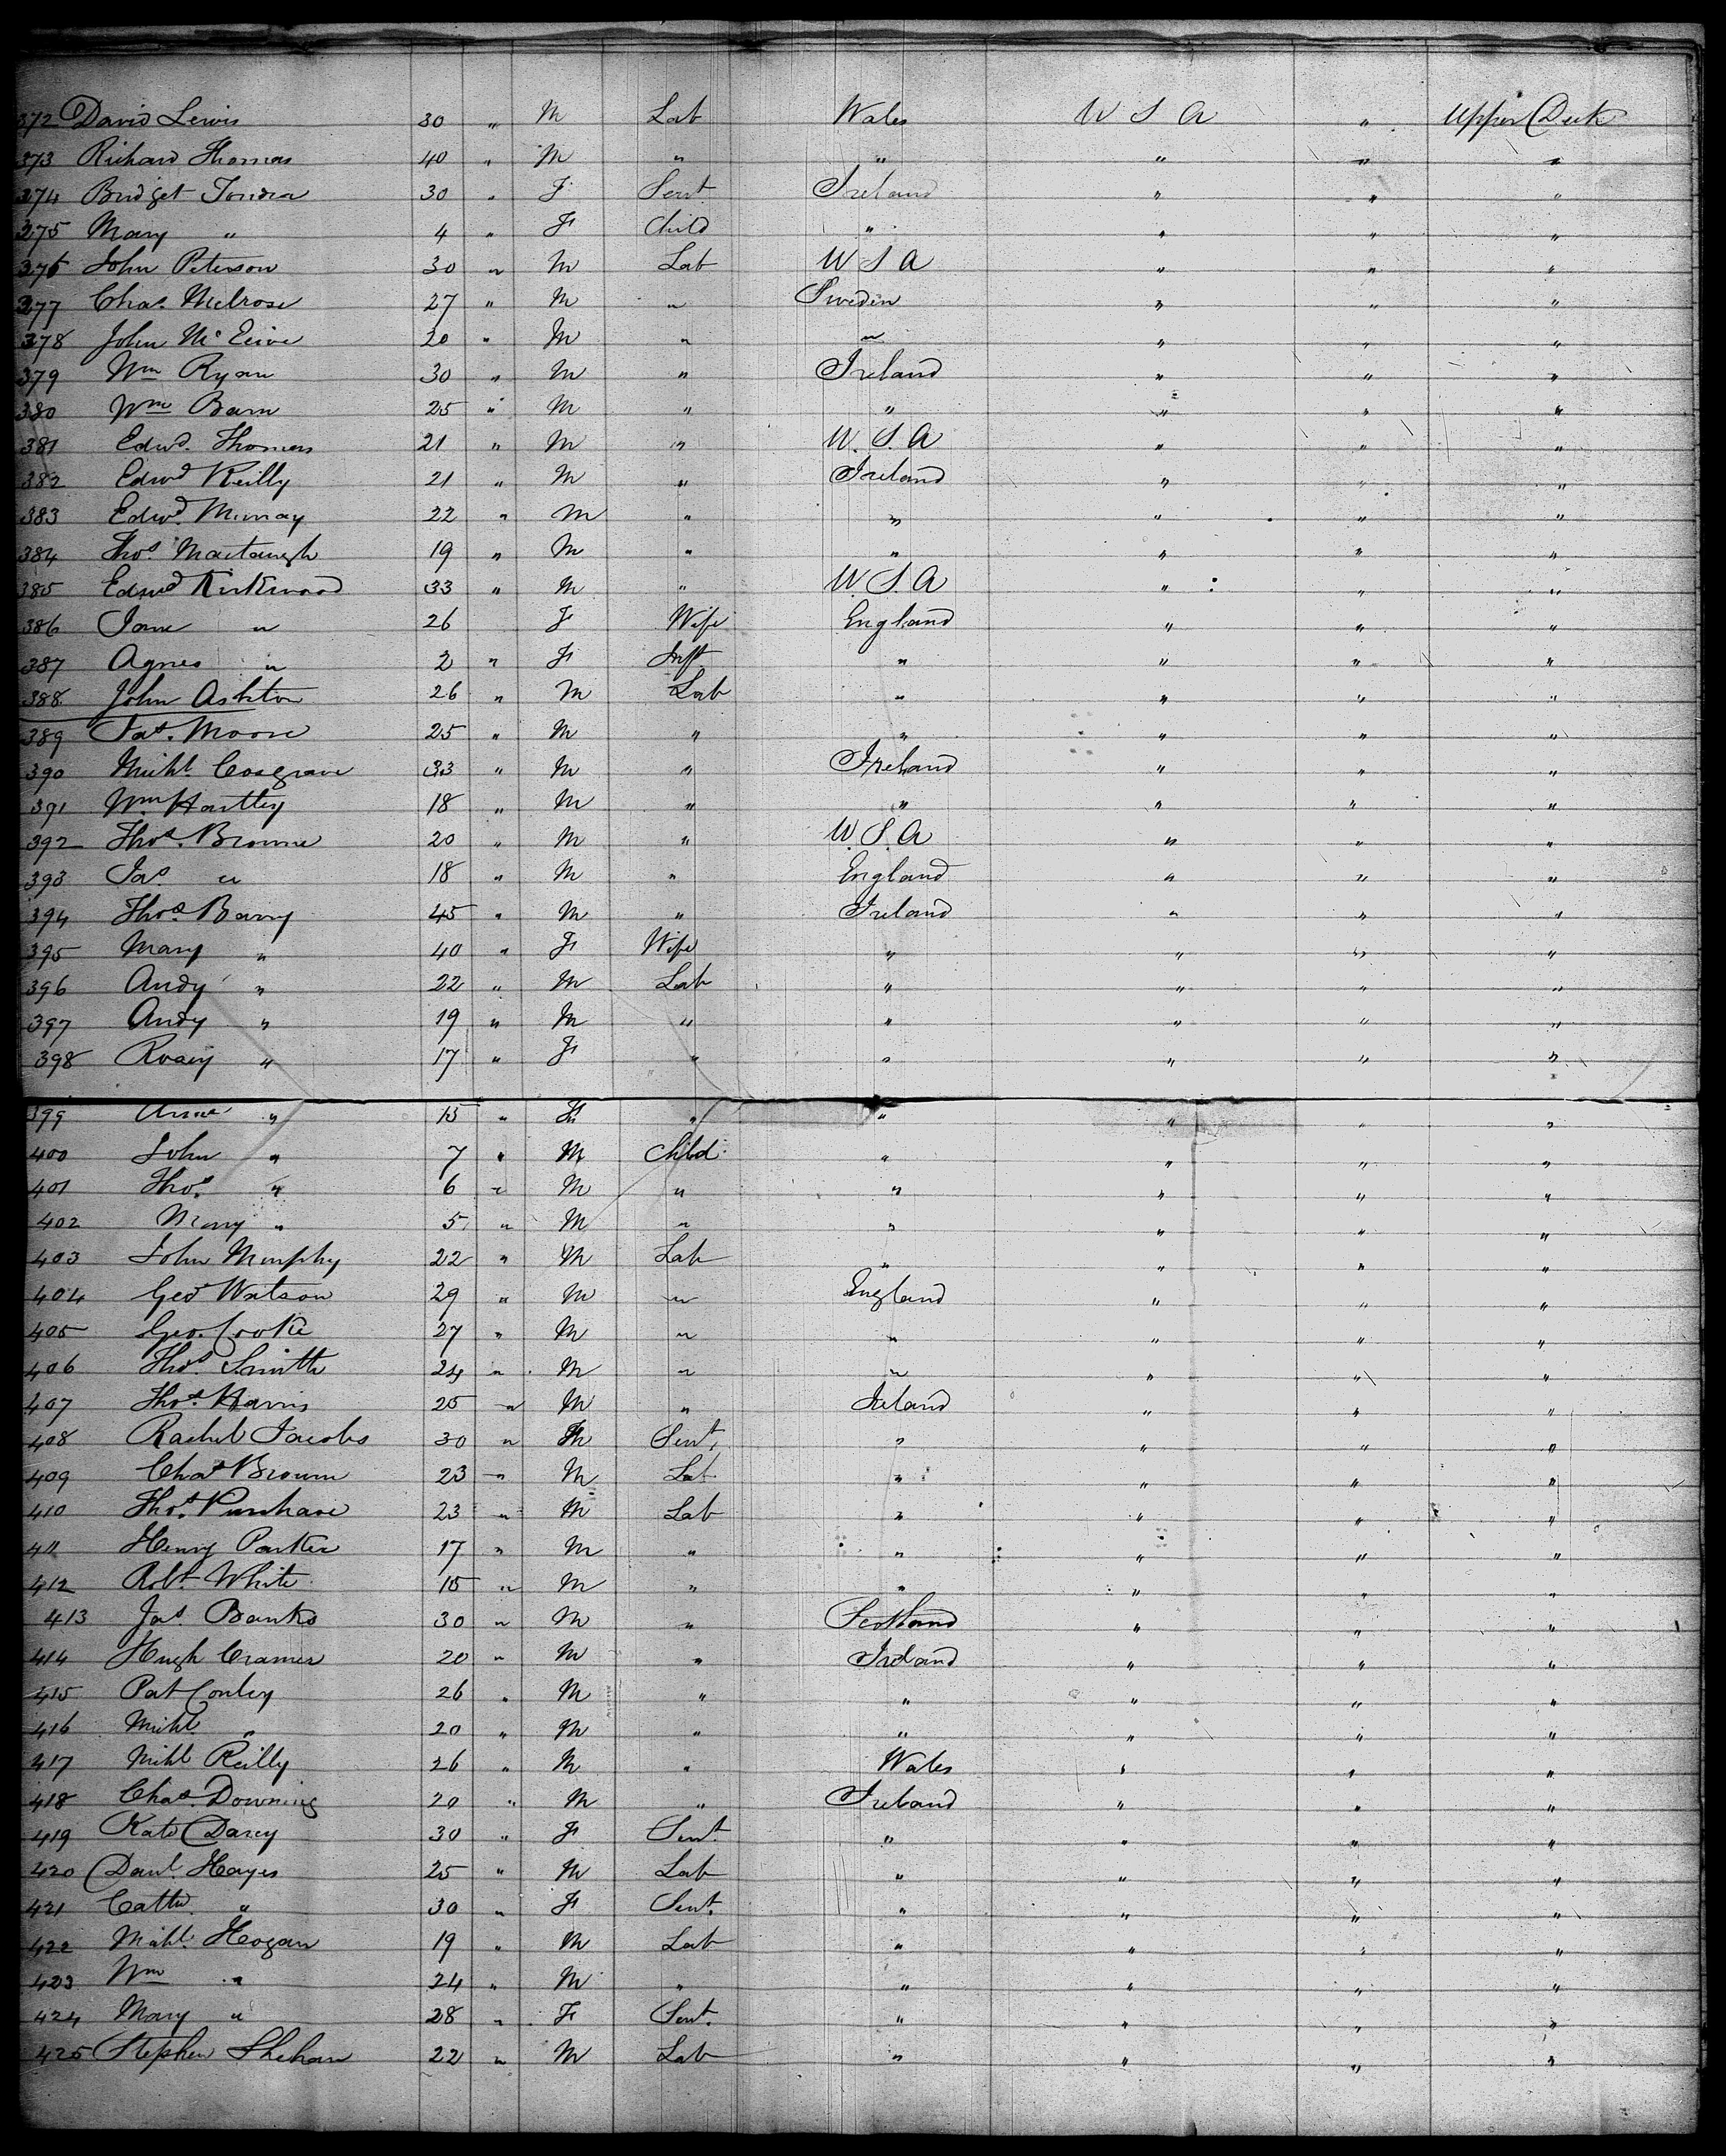 372 David Lewis 30 " M Lab Wales U S A " Upper Deck
373 Richard Thomas 40 " M " " " " "
374 Bridget 30 " F Servt Ireland " " "
375 Mary " 4 " F Child " " " "
376 John Peterson 30 " M Lab U S A " " "
377 Chas. Melrose 27 " M " Sweden " " "
378 John 20 " M " " " " "
379 Wm Ryan 30 " M " Ireland " " "
380 Wm Barn 25 " M " " " " "
381 Edwd. Thomas 21 " M " U.S.A " " "
382 Edwd Reilly 21 " M " Ireland " " "
383 Edwd. Murray 22 " M " " " " "
384 Thos. 19 " M " " " " "
385 Edwd Kirkwood 33 " M " U.S.A " " "
386 Jane " 26 F Wife England " " "
387 Agnes " 2 " F Inft " " " "
388 John Ashton 26 " M Lab " " " "
389 Jas. Moore 25 " M " " " " "
390 Michl. Cosgrave 33 " M " Ireland " " "
391 Wm Hartley 18 " M " " " " "
392 Thos. Browne 20 " M " U.S.A " " "
393 Jas. " 18 " M " England " " "
394 Thos. Barry 45 " M " Ireland " " "
395 Mary " 40 " F Wife " " " "
396 Andy " 22 " M Lab " " " "
397 Andy " 19 " M " " " " "
398 " 17 " F " " " " "
399 Anne " 15 " F " " " " "
400 John " 7 " M Child " " " "
401 Thos. " 6 " M " " " " "
402 Mary " 5 " M " " " " "
403 John Murphy 22 " M Lab " " " "
404 Geo Watson 29 " M " England " " "
405 Geo. Cooke 27 " M " " " " "
406 Thos. Smith 24 " M " " " " "
407 Thos. Harris 25 " M " Ireland " " "
408 Rachel Jacobs 30 " F Servt. " " " "
409 Chas Brown 23 " M Lab " " " "
410 Thos. Purchase 23 " M Lab " " " "
411 Henry Parker 17 " M " " " " "
412 Robt. White 15 " M " " " " "
413 Jas Banks 30 " M " Scotland " " "
414 Hugh Cramer 20 " M " Ireland " " "
415 Pat Conley 26 " M " " " " "
416 Michl. " 20 " M " " " " "
417 Michl Reilly 26 " M " Wales " " "
418 Chas. Downing 20 " M " Ireland " " "
419 Kate Darcy 30 " F Servt. " " " "
420 Danl. Hayes 25 " M Lab " " " "
421 Cathe. " 30 " F Servt. " " " "
422 Michl. Hogan 19 " M Lab " " " "
423 Wm " 24 " M " " " " "
424 Mary " 28 " F Servt. " " " "
425 Stephen Shehan 22 " M Lab " " " "